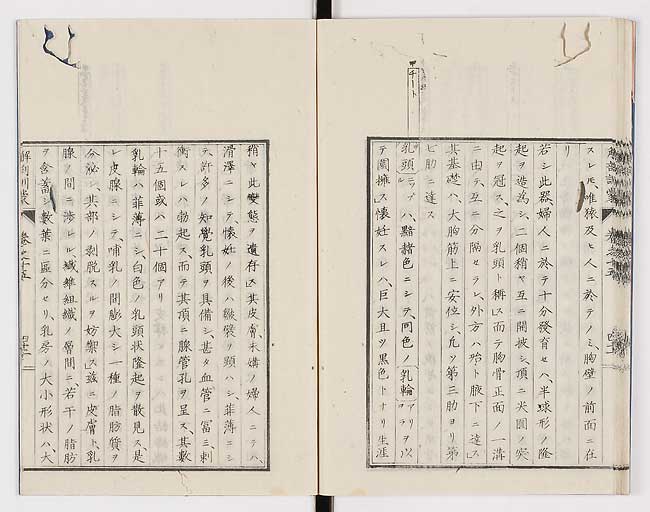 チート
スレ𪜈、唯猿及ヒ人ニ於テノミ、胸壁ノ前面ニ在
リ
若シ此器婦人ニ於テ十分發育セハ、半球形ノ隆
起ヲ造爲シ、二個稍ヤ互ニ開披シ、頂ニ尖圓ノ突
起ヲ冠ス之ヲ乳頭ト稱ス而テ胸骨正面ノ一溝
ニ由テ互ニ分隔セラレ、外方ハ殆ト腋下ニ達ス
其基礎ハ、大胸筋上ニ安位シ、凡ソ第三肋ヨリ第
七肋ニ達ス
乳頭ハ、黯赭色ニシテ、同色ノ乳輪ヲ以
テ圍擁ス懷妊スレハ、巨大且ツ黒色トナリ生涯
稍ヤ此變態ヲ遺存ス其皮膚、未媾ノ婦人ニテハ、
滑澤ニシテ、懷妊ノ後ハ皺襞ヲ顯ハシ、菲薄ニシ
テ、許多ノ知覺乳頭ヲ具備シ、甚タ血管ニ富ミ、刺
衝スレハ勃起ス、而テ其頂ニ腺管孔ヲ呈ス、其數
十五個或ハ二十個アリ
乳輪ハ菲薄ニシ、白色ノ乳頭状隆起ヲ散見ス、是
レ皮腺ニシテ、哺乳ノ間膨大シ一種ノ脂肪質ヲ
分泌シ、其部ノ剥脱スルヲ妨禦ス茲ニ皮膚ト、乳
腺ノ間ニ渉レル纖維組織ノ層間ニ、若干ノ脂肪
ヲ含蓄シ、數葉ニ區分セリ、乳房ノ大小形状ハ、大